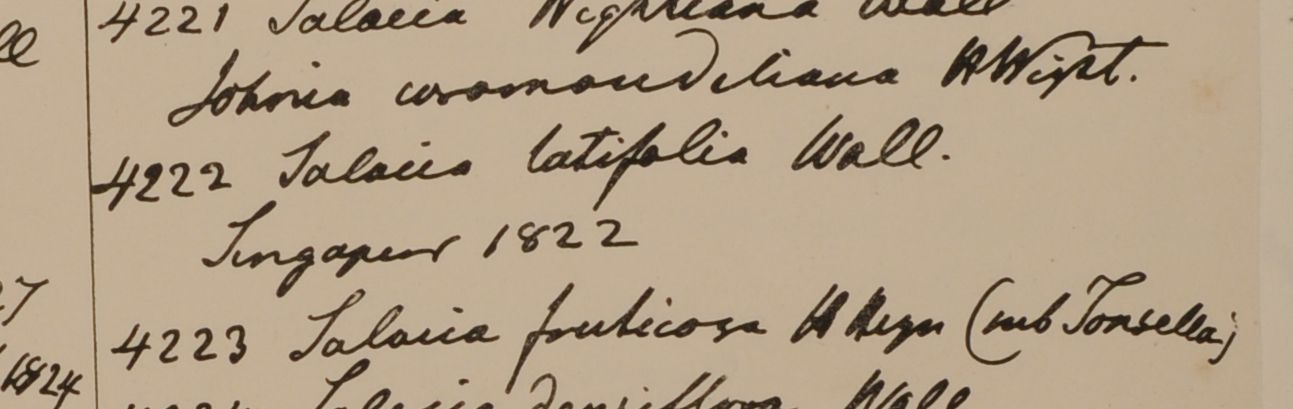 4221 Salacia Wightiana Wall
Johnia coromandeliana H Wight.
4222 Salacia latifolia Wall.
Singapur 1822
4223 Salacia fruticosa H Heyn (sub Tonsella)
1824
Salacia densiflora Wall